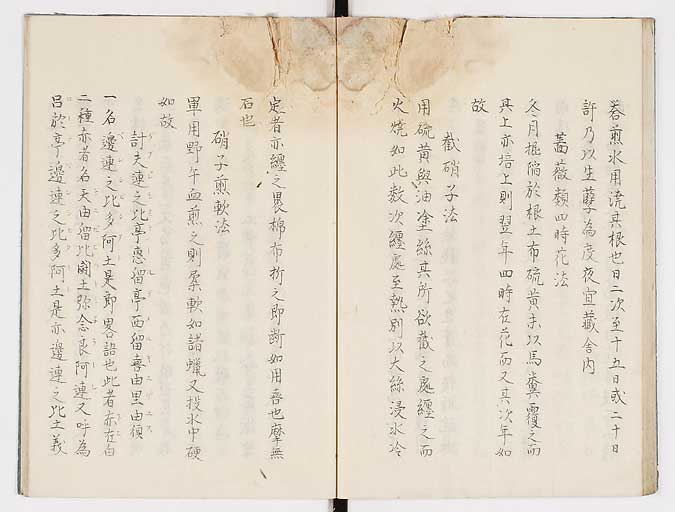 春煎水用澆其根也日二次至十五日或二十日
許乃以生孽為度夜宜藏舍内
薔薇類四時花法
冬月掘陷於根土布硫黄末以馬糞覆之而
其上亦培土則翌年四時在花而又其次年如
故
截硝子法
用硫黄與油塗絲其所欲截之處纏之而
火燒如此数次纏處至熱別以大絲浸水冷
定者亦纏之畏棉布折之即断如用吞也摩無
石也
硝子煎軟法
單用野午血煎之則柔軟如諸蠟又投水中硬
如故
討夫連之比亭惠留亭西留喜由里由須
一名邊連之比多阿土是即畧語也此者亦在白
二種赤者名天由留比蘭土弥念良阿連又呼為
呂於亭邊連之比多阿土是亦邊連之比土義